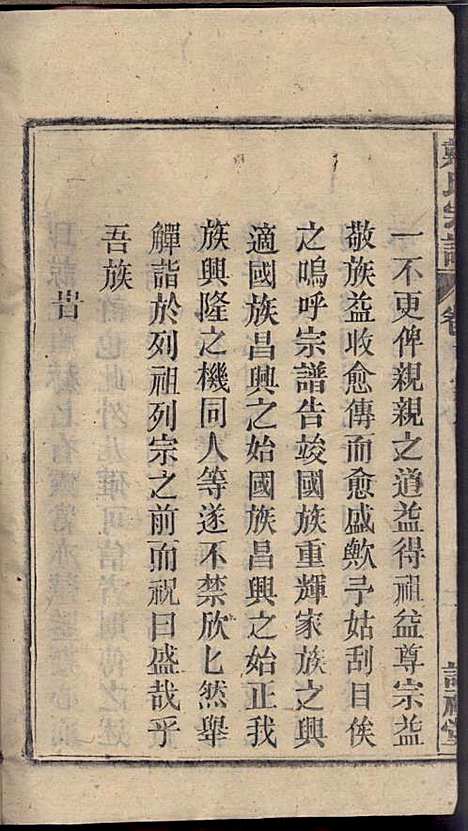 一不更俾親親之道益得祖益尊宗益
敬族益收愈傳而愈盛歟予姑刮目俟
之嗚呼宗譜告竣國族重輝家族之興
適國族昌興之始國族昌興之始正我
族興隆之機同人等遂不禁欣匕然舉
觶詣於列祖列宗之前而祝曰盛哉乎
吾族
旹
氏宗譜
卷